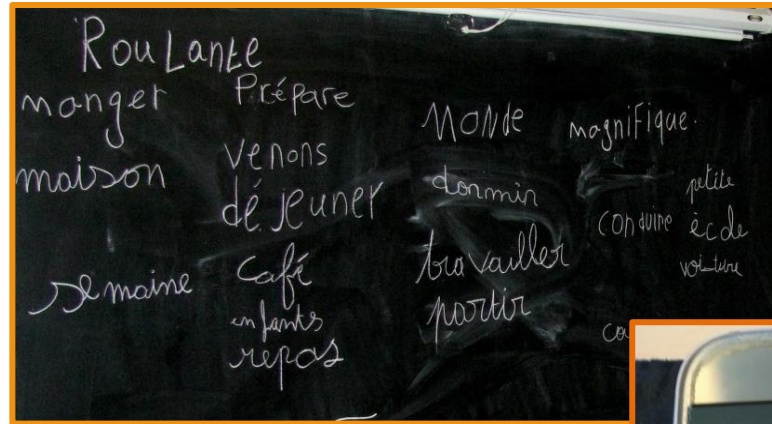 Roulante
manger
maison
semaine
Prépare
venons
déjeuner
café
enfants
repas
Monde
dormir
travailler
partir
magnifique.
conduire
petite
école
voiture